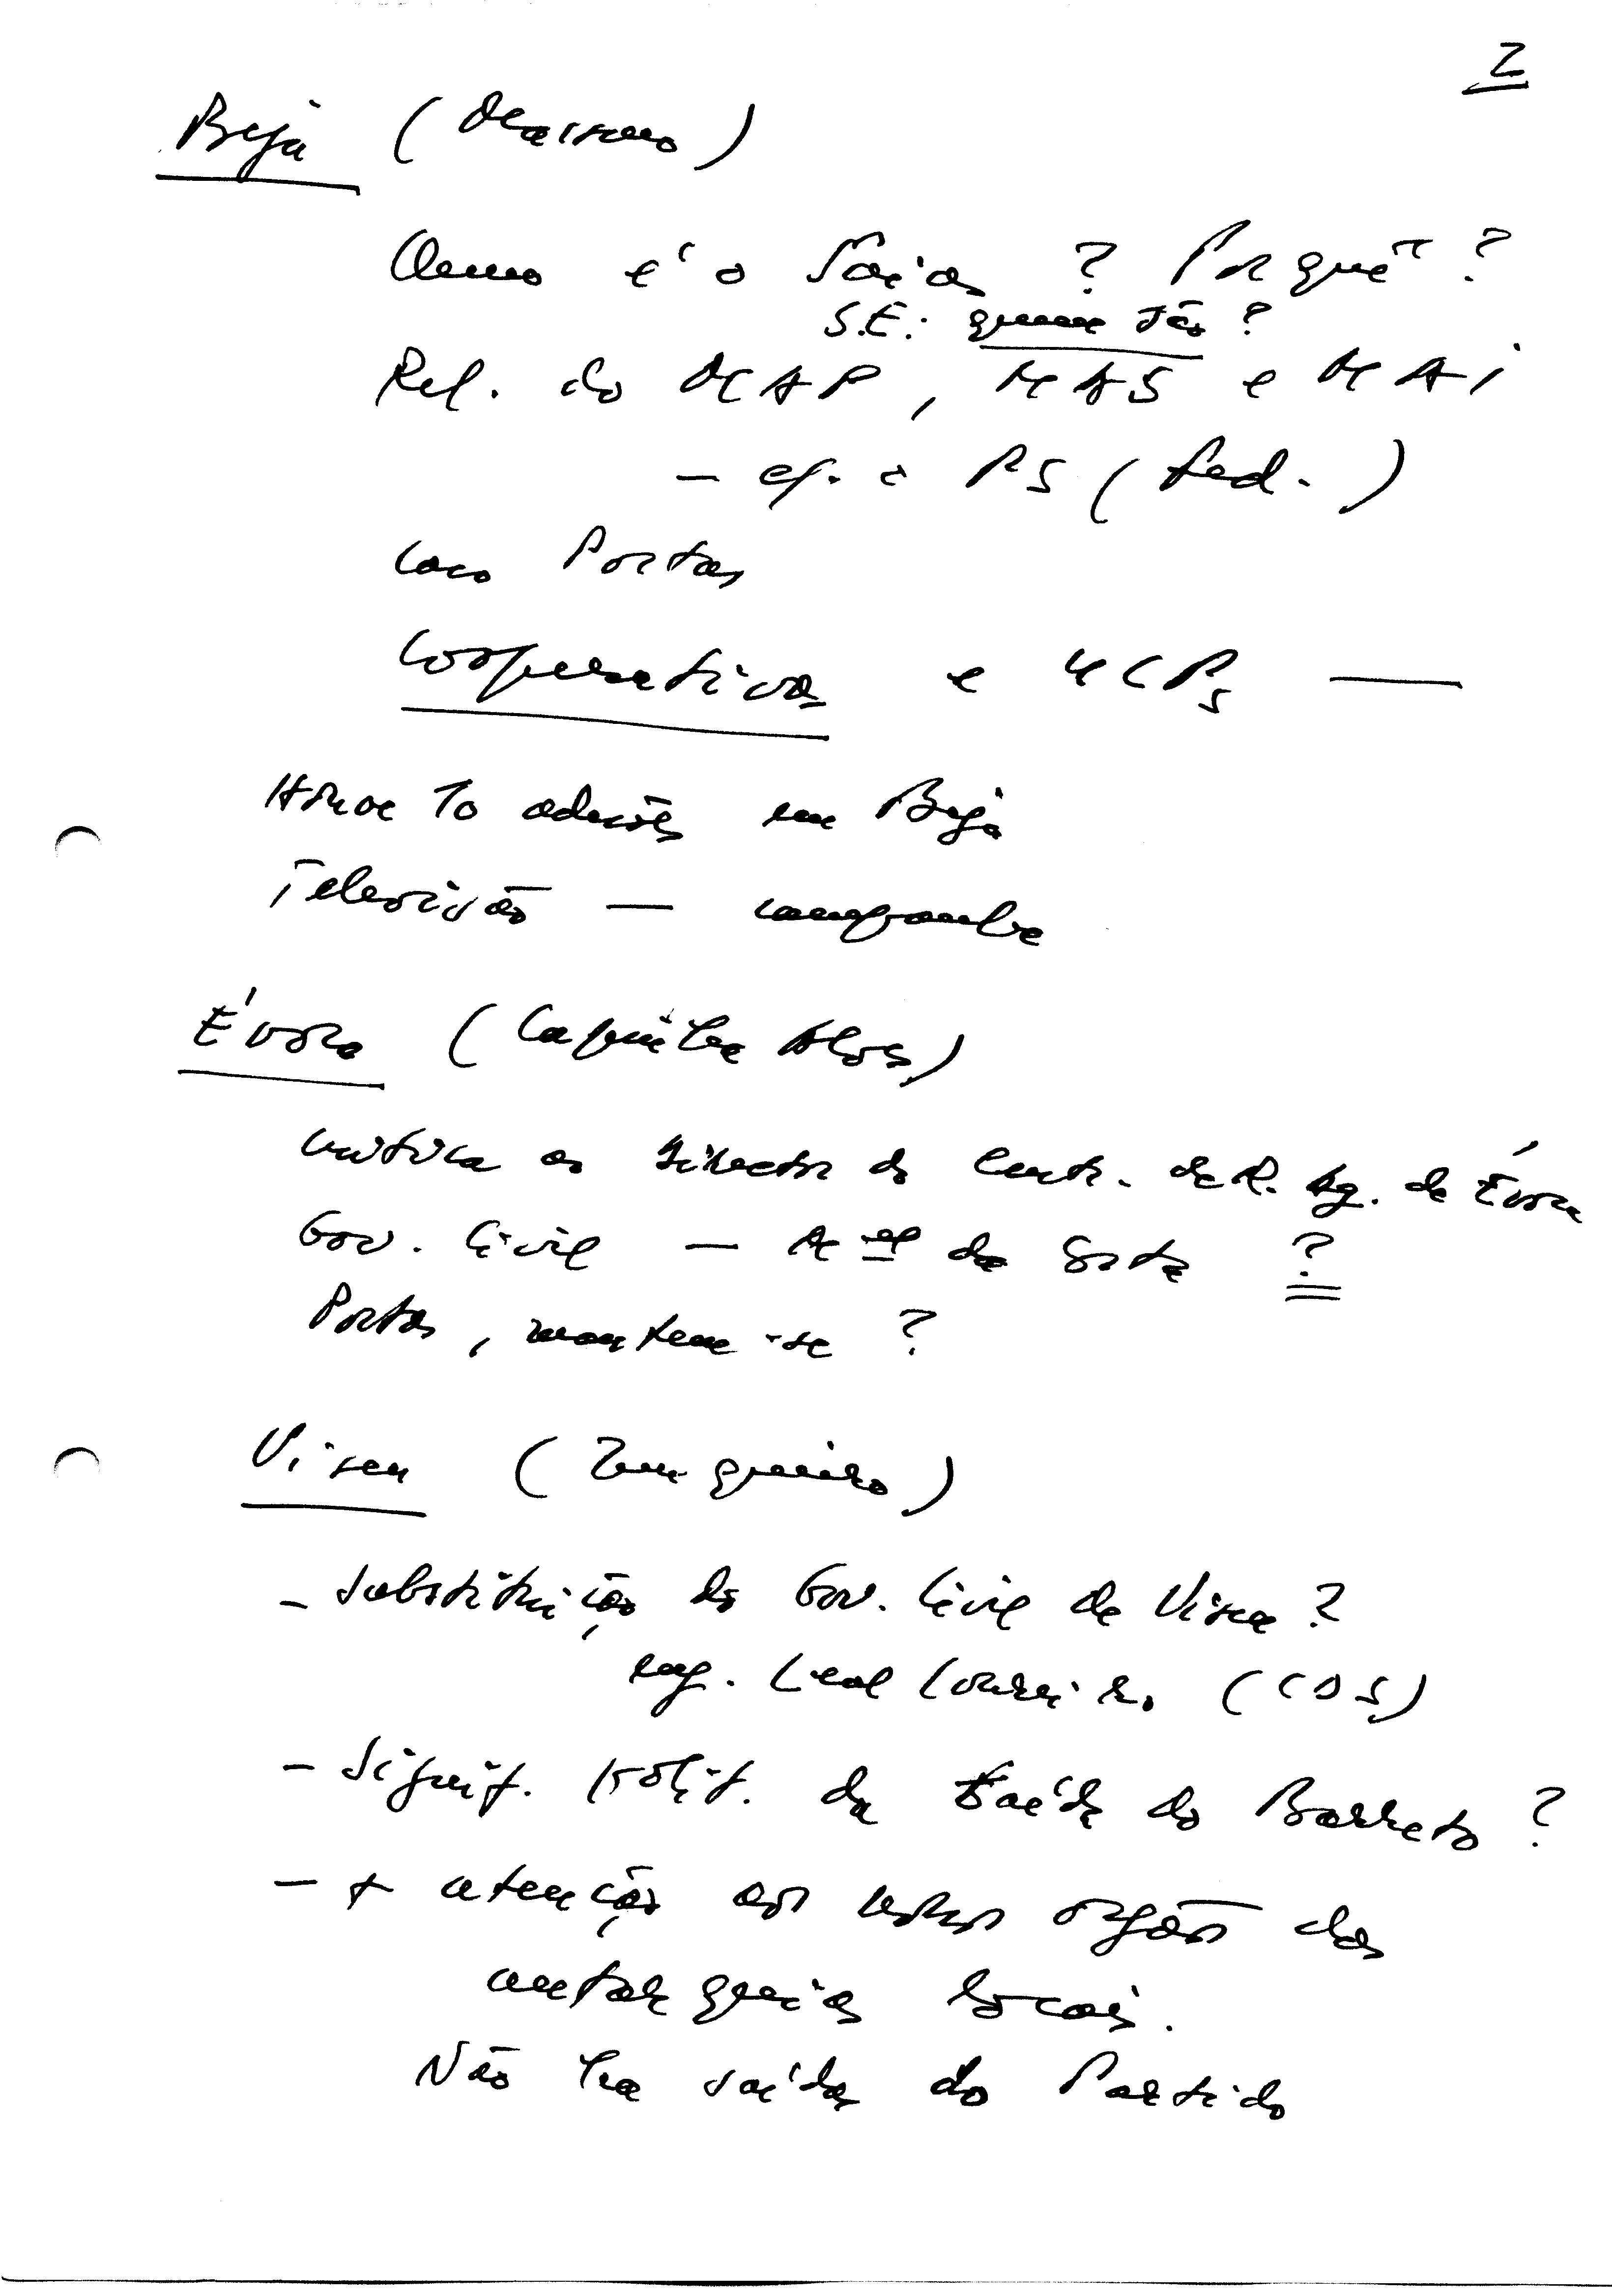 2
Beja (            )
é o Saias ? Porquê ?
S.E.: quem são ?
Rel. do MAP, MAS e MAI
— cf. o PS (Fed.)
Caso Portas
Cooperativas e UCPs —
Houve 10 adesões em Beja
Televisão — campanha
Évora (Capoulas Alves)
critica o Director do Centr. de R. Ag. de Évora
Gov. Civil — Mel da Costa ?
Portas, mantem-se ?
Viseu (Junqueiro)
- Substituição do Gov. Civil de Viseu ?
eng. Leal Loureiro (CDS)
- Signif. polit. da saída do Barreto ?
- + atenção aos vários orgãos das
autarquias locais.
Não há saídas do Partido